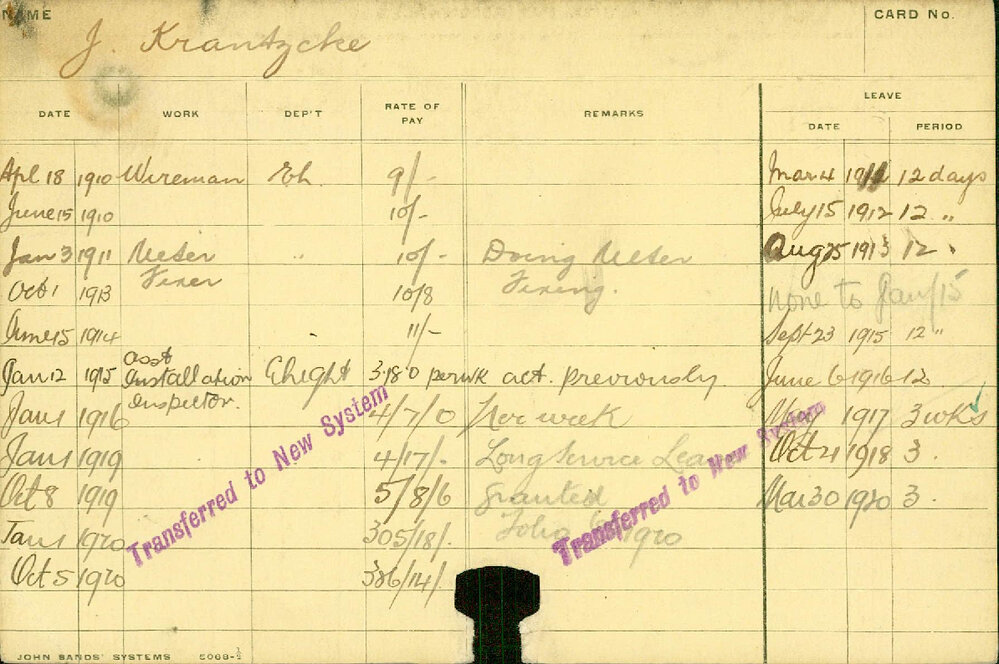 NAME
CARD No.
J. Krantzcke
DATE WORK DEP'T RATE OF PAY REMARKS LEAVE
DATE PERIOD
Apl 18 1910 Wireman El. 9/- Mar 4 12 days
June 15 1910 10/- July 15 1912 12 "
Jan 3 1911 Meter " 10/- Doing Meter Aug 25 1913 12 "
Oct 1 1913 Fixer 10/8 Fixing. none to Jan/15
June 15 1914 11/- Sept 23 1915 12 "
Jan 12 1915 asst Installation Inspector. Elight 3.18.0 per wk act. previously June 6 1916 12
Jan 1 1916 4/7/0 Per week 1917 3 wks
Jan 1 1919 4/17/- Long Service Leave Oct 21 1918 3 .
Oct 8 1919 5/8/6 granted Mar 30 1920 3 .
Jan 1 1920 305/18/- Folio 1920
Oct 5 1920 386/14/-
Transferred to New System
Transferred to New System
JOHN SANDS' SYSTEMS 5068-½